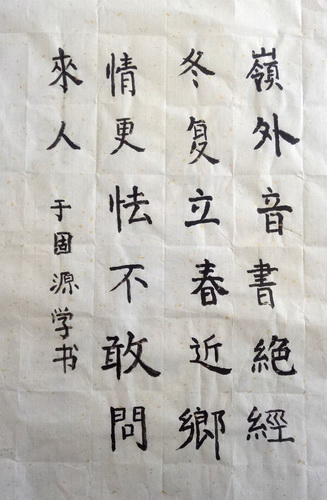 嶺外音書絶經
冬复立春近鄉
情更怯不敢問
來人 于固源学书